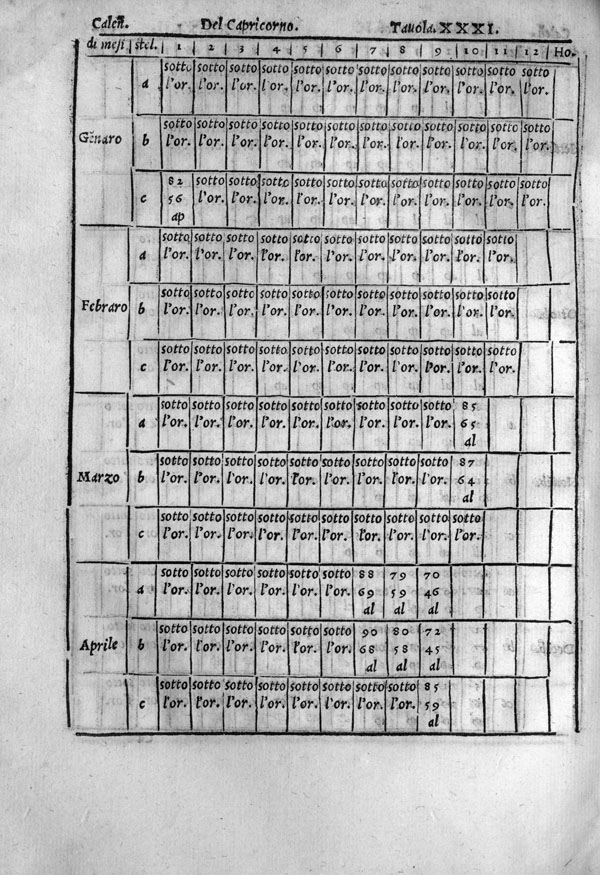 Caleñ. Del Capricorno. Tauola.XXXI.
di mesi stel. 1 2 3 4 5 6 7 8 9 10 11 12 Ho.
sotto sotto sotto sotto sotto sotto sotto sotto sotto sotto sotto sotto
a l'or. l'or. l'or. l'or. l'or. l'or. l'or. l'or. l'or. l'or. l'or. l'or.
sotto sotto sotto sotto sotto sotto sotto sotto sotto sotto sotto sotto
Gẽnaro b l'or. l'or. l'or. l'or. l'or. l'or. l'or. l'or. l'or. l'or. l'or. l'or.
82 sotto sotto sotto sotto sotto sotto sotto sotto sotto sotto sotto
c 56 l'or. l'or. l'or. l'or. l'or. l'or. l'or. l'or. l'or. l'or. l'or.
ap
sotto sotto sotto sotto sotto sotto sotto sotto sotto sotto sotto
a l'or. l'or. l'or. l'or. l'or. l'or. l'or. l'or. l'or. l'or. l'or.
sotto sotto sotto sotto sotto sotto sotto sotto sotto sotto sotto
Febraro b l'or. l'or. l'or. l'or. l'or. l'or. l'or. l'or. l'or. l'or. l'or.
sotto sotto sotto sotto sotto sotto sotto sotto sotto sotto sotto
c l'or. l'or. l'or. l'or. l'or. l'or. l'or. l'or. l'or. l'or. l'or.
sotto sotto sotto sotto sotto sotto sotto sotto sotto 85
a l'or. l'or. l'or. l'or. l'or. l'or. l'or. l'or. l'or. 65
al
sotto sotto sotto sotto sotto sotto sotto sotto sotto 87
Marzo b l'or. l'or. l'or. l'or. l'or. l'or. l'or. l'or. l'or. 64
al
sotto sotto sotto sotto sotto sotto sotto sotto sotto sotto
c l'or. l'or. l'or. l'or. l'or. l'or. l'or. l'or. l'or. l'or.
sotto sotto sotto sotto sotto sotto 88 79 70
a l'or. l'or. l'or. l'or. l'or. l'or. 69 59 46
al al al
sotto sotto sotto sotto sotto sotto 90 80 72
Aprile b l'or. l'or. l'or. l'or. l'or. l'or. 68 58 45
al al al
sotto sotto sotto sotto sotto sotto sotto sotto 85
c l'or. l'or. l'or. l'or. l'or. l'or. l'or. l'or. 59
al